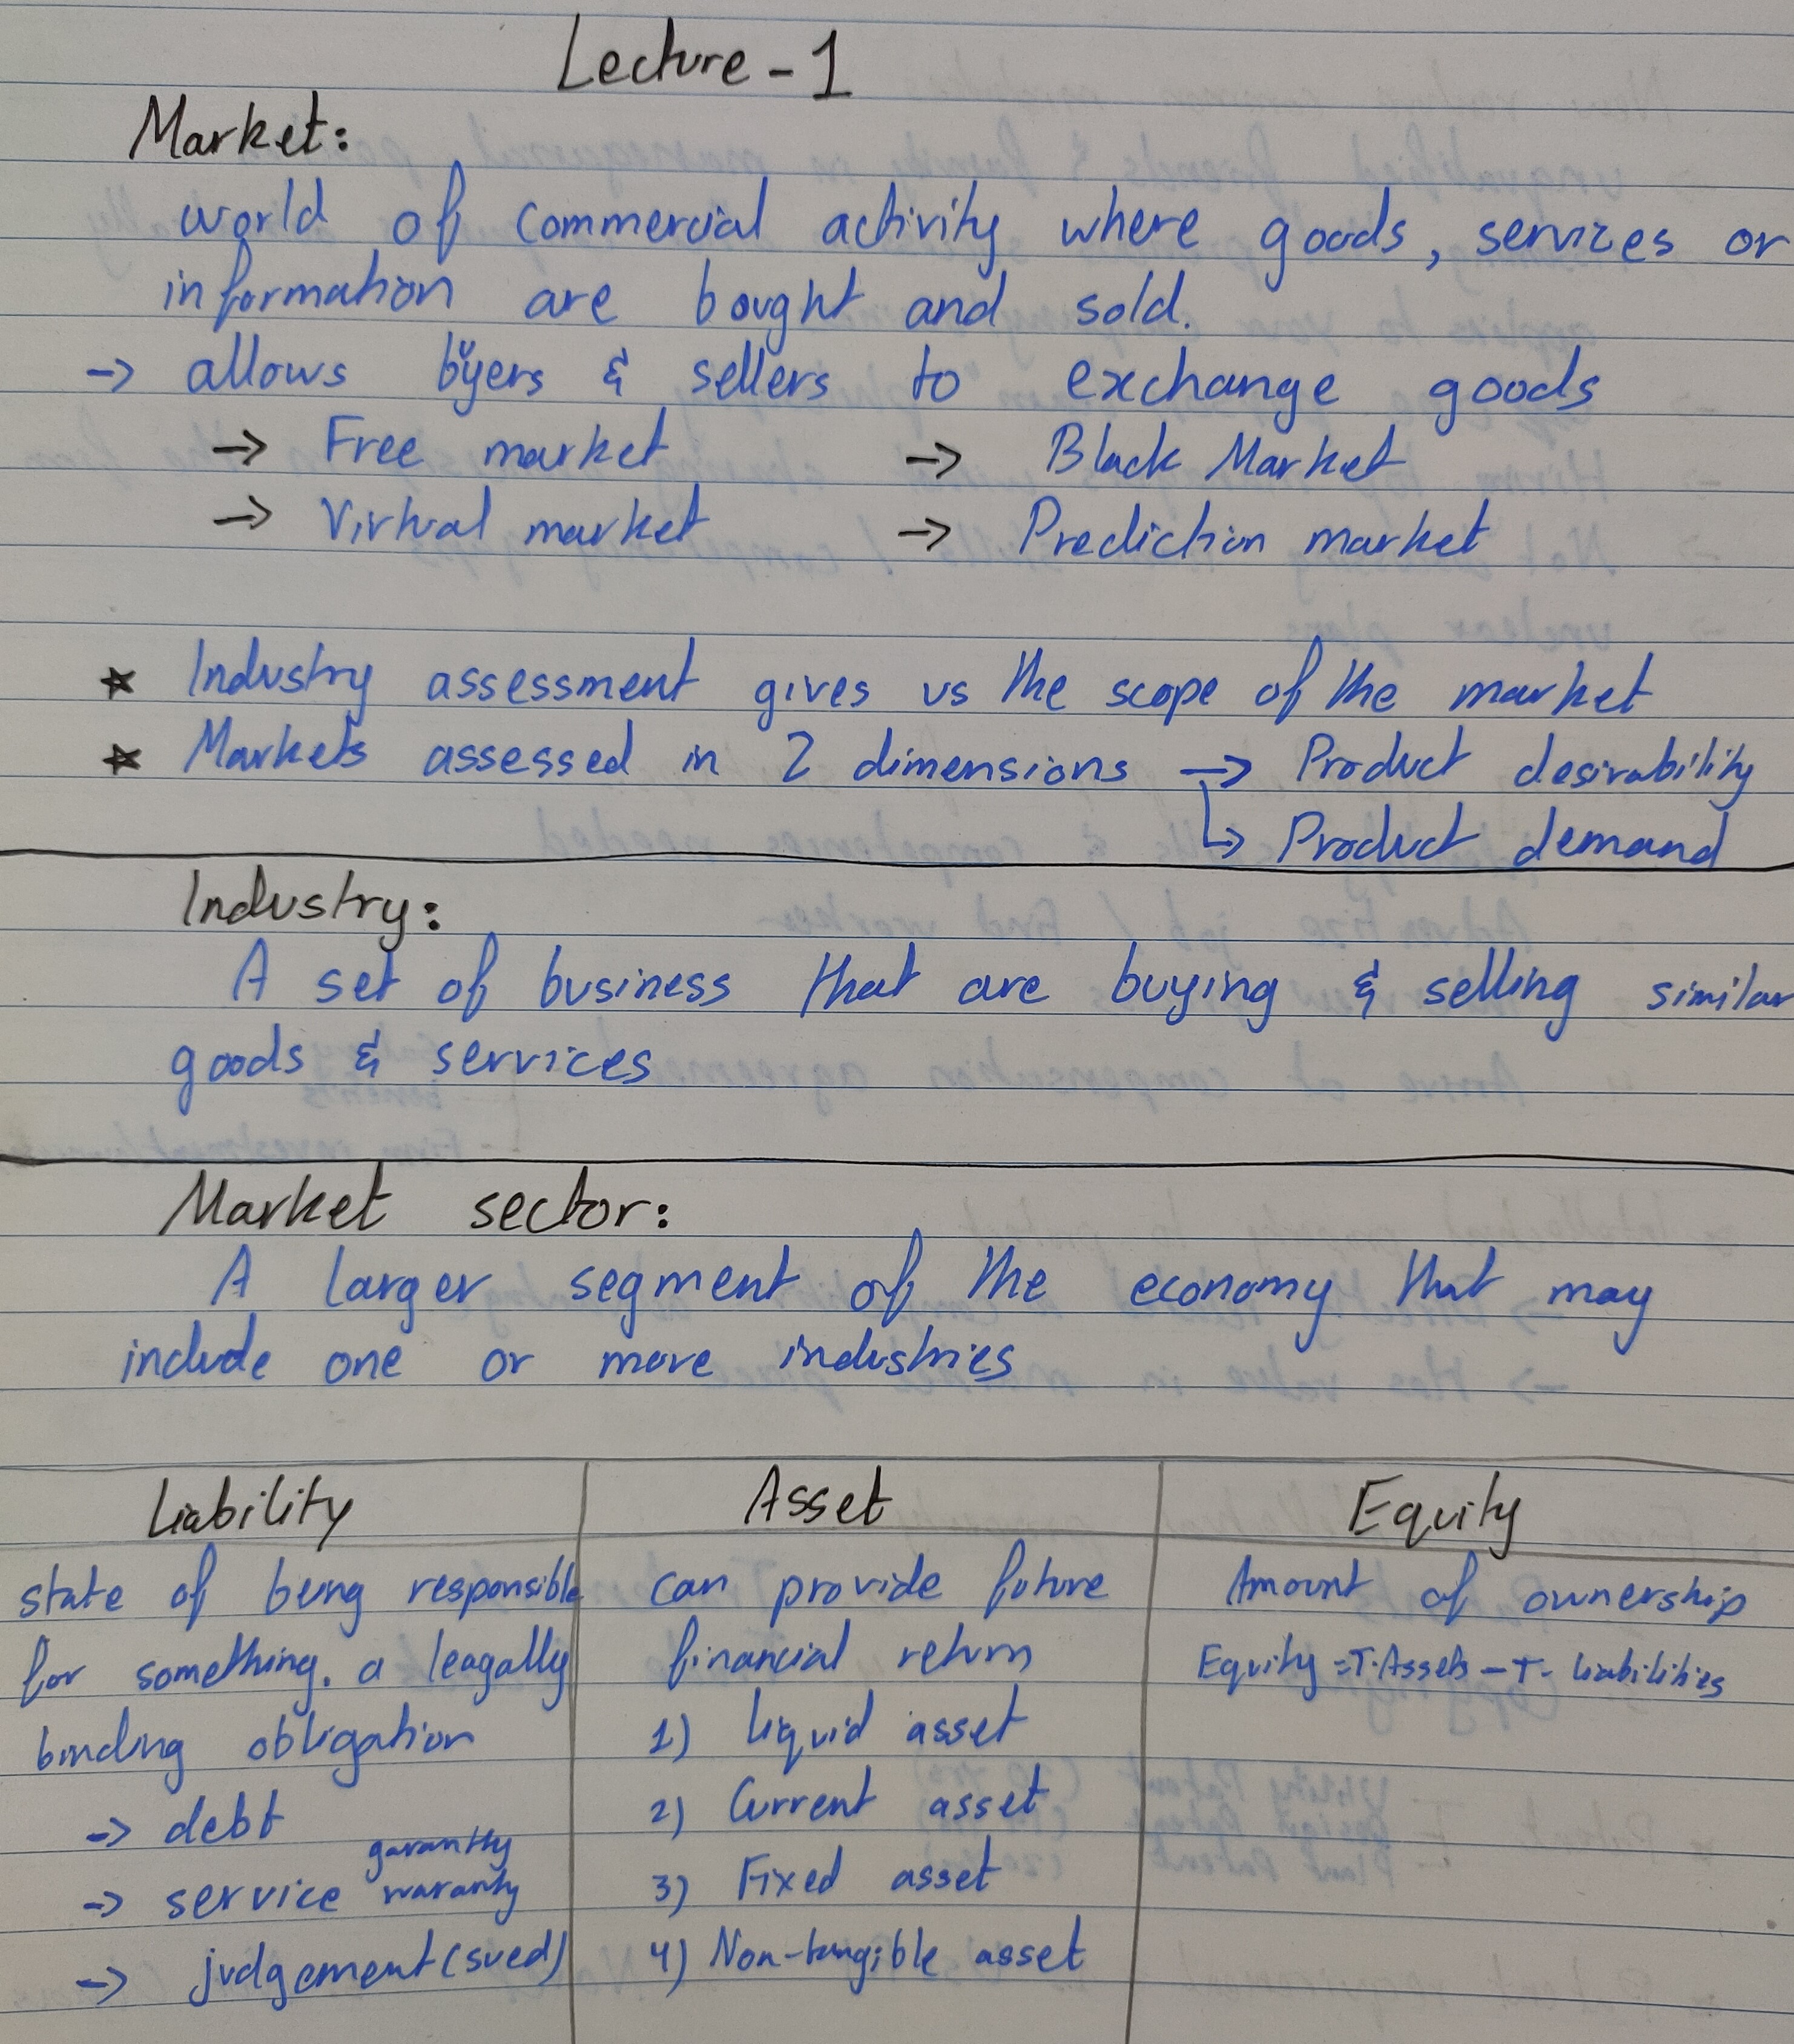 Lecture - 1
Market:
world of commercial activity where goods, services or
information are bought and sold.
→ allows buyers & sellers to exchange goods
→ Free market → Black Market
→ Virtual market → Prediction market
★ Industry assessment gives us the scope of the market
★ Markets assessed in 2 dimensions → Product desirability
↳ Product demand
Industry:
A set of business that are buying & selling similar
goods & services
Market sector:
A larger segment of the economy that may
include one or more industries
Liability
state of being responsible
for something. a leagally
binding obligation
→ debt
garantty
→ service waranty
→ judgement (sued)
Asset
can provide future
financial return
1) liquid asset
2) Current asset
3) Fixed asset
4) Non-tangible asset
Equity
Amount of ownership
Equity = T. Assets - T. liabilities